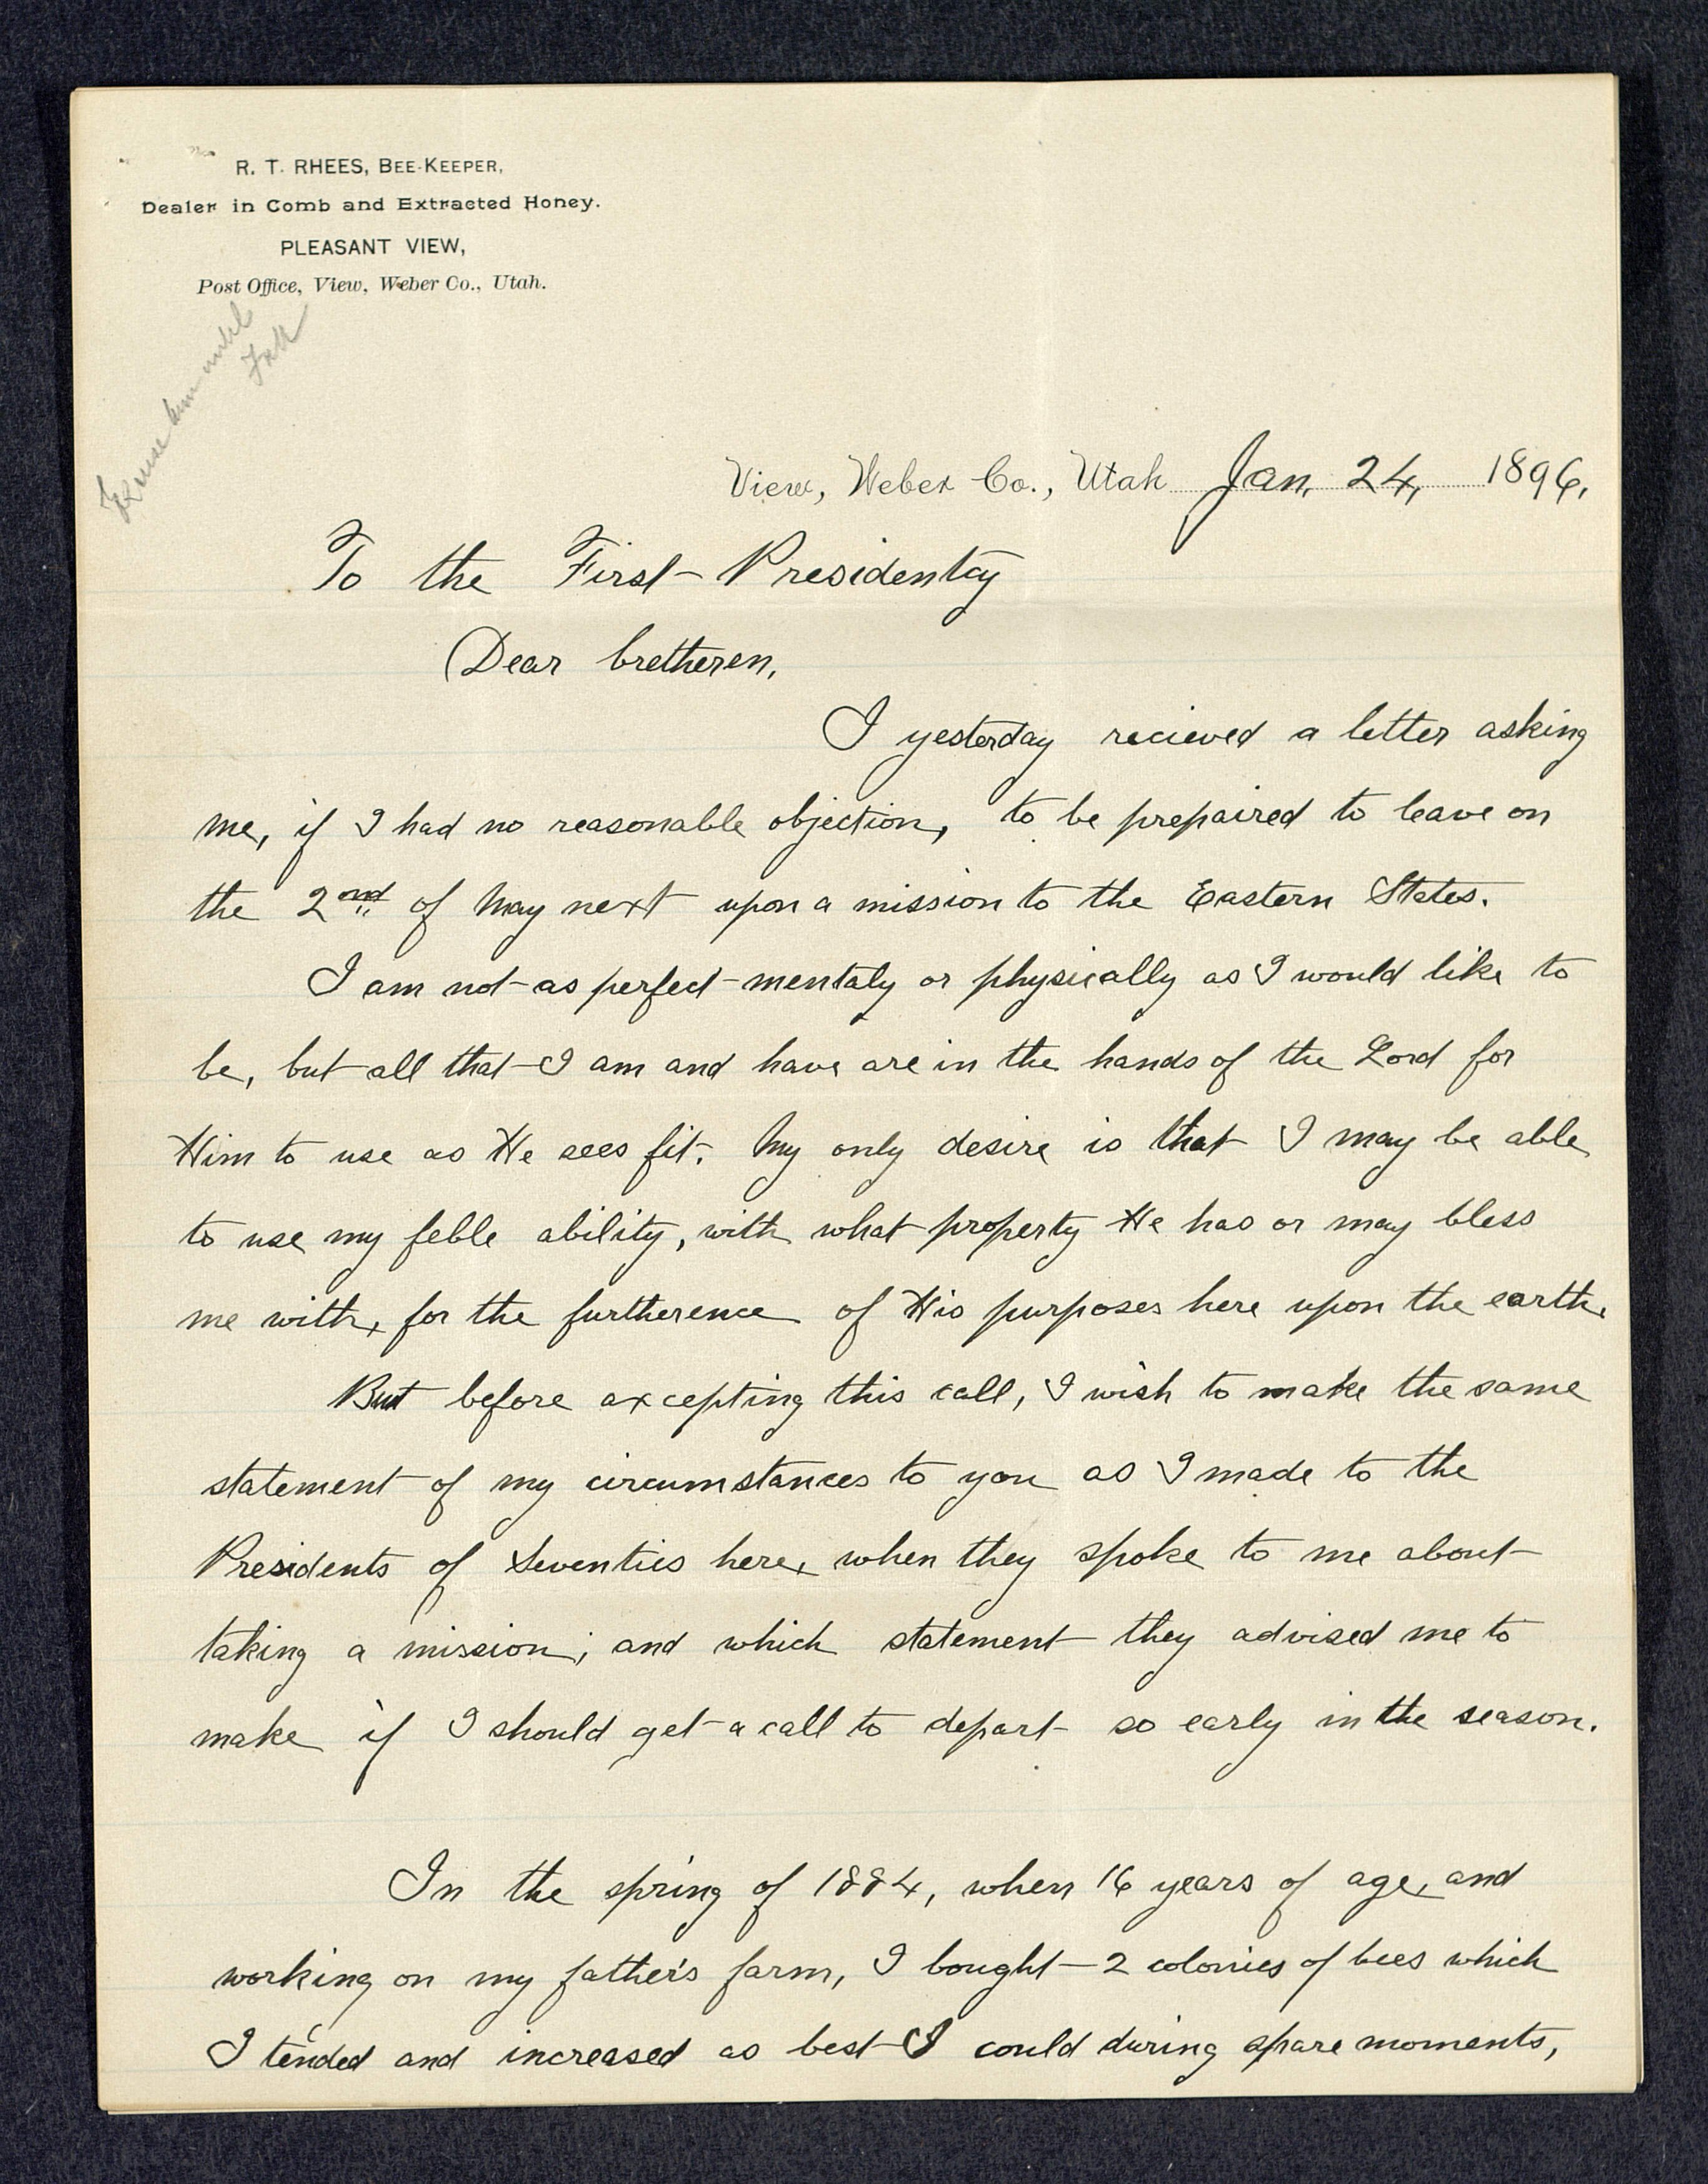 R. T. RHEES, BEE-KEEPER,
Dealer in Comb and Extracted Honey.
PLEASANT VIEW,
Post Office, View, Weber Co., Utah.
Excuse him until
Fall
View, Weber Co., Utah Jan. 24, 1896.
To the First Presidentcy
Dear bretheren,
I yesterday recieved a letter asking
me, if I had no reasonable objection, to be prepaired to leave on
the 2nd of May next upon a mission to the Eastern States.
I am not as perfect mentaly or physically as I would like to
be, but all that I am and have are in the hands of the Lord for
Him to use as He sees fit. My only desire is that I may be able
to use my feble ability, with what property He has or may bless
me with, for the furtherence of His purposes here upon the earth.
But before axcepting this call, I wish to make the same
statement of my circumstances to you as I made to the
Presidents of Seventies here, when they spoke to me about
taking a mission; and which statement they advised me to
make if I should get a call to depart so early in the season.
In the spring of 1884, when 16 years of age, and
working on my father's farm, I bought 2 colonies of bees which
I tended and increased as best I could during spare moments,